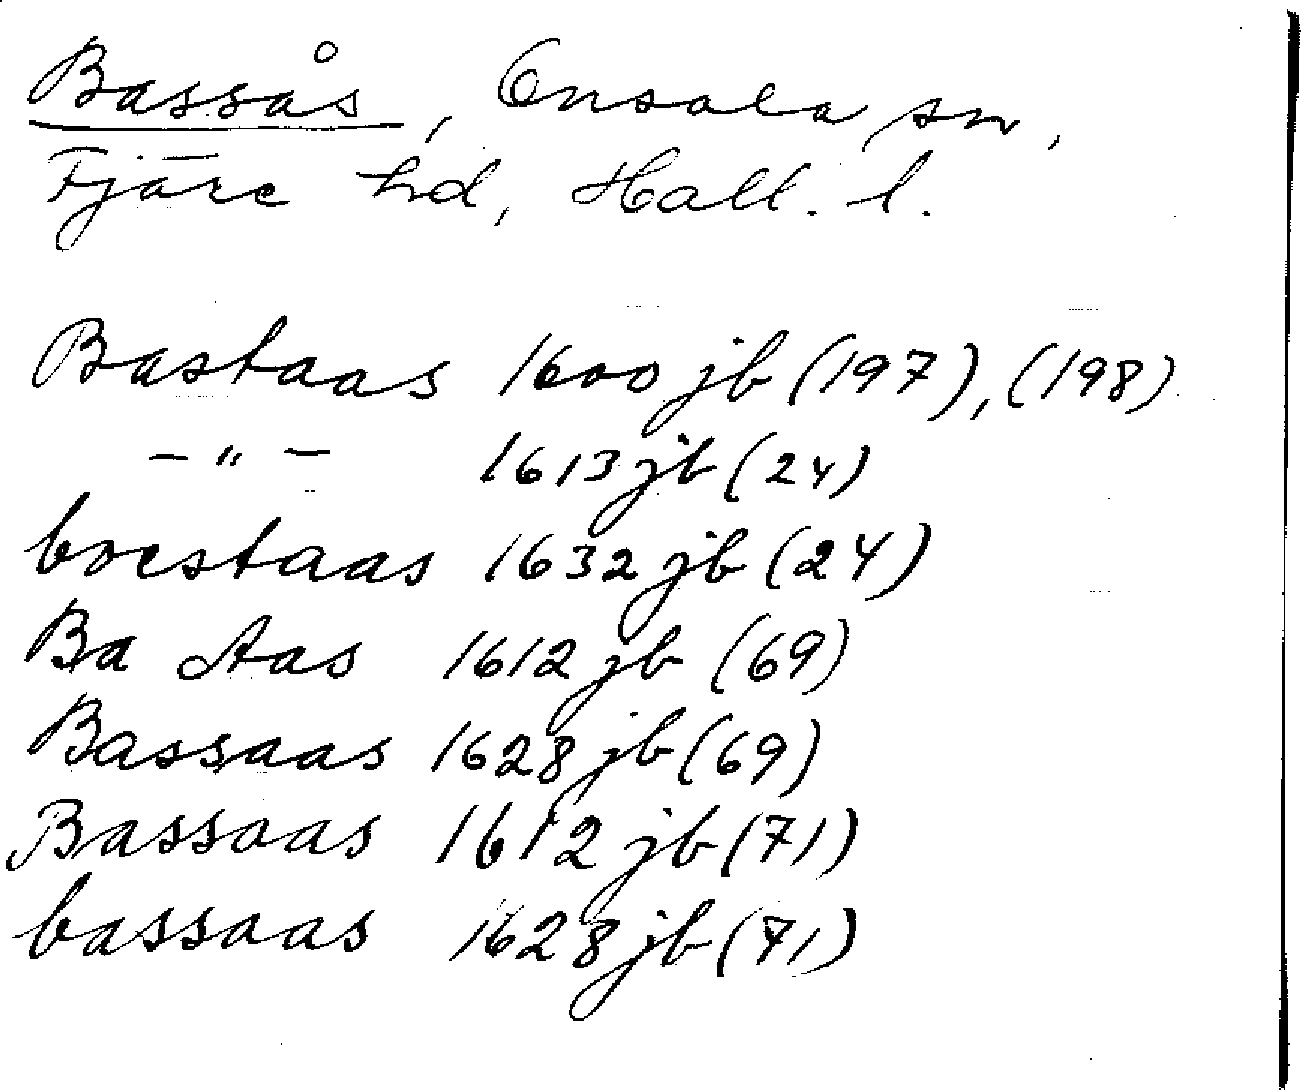 Bassås, Onsala sn,
Fjäre hd, Hall. l.
Bastaas 1600 jb (197), (198)
– " – 1613 jb (24)
boestaas 1632 jb (24)
Ba staas 1612 jb (69)
Bassaas 1628 jb (69)
Bassaas 1612 jb (71)
bassaas 1628 jb (71)